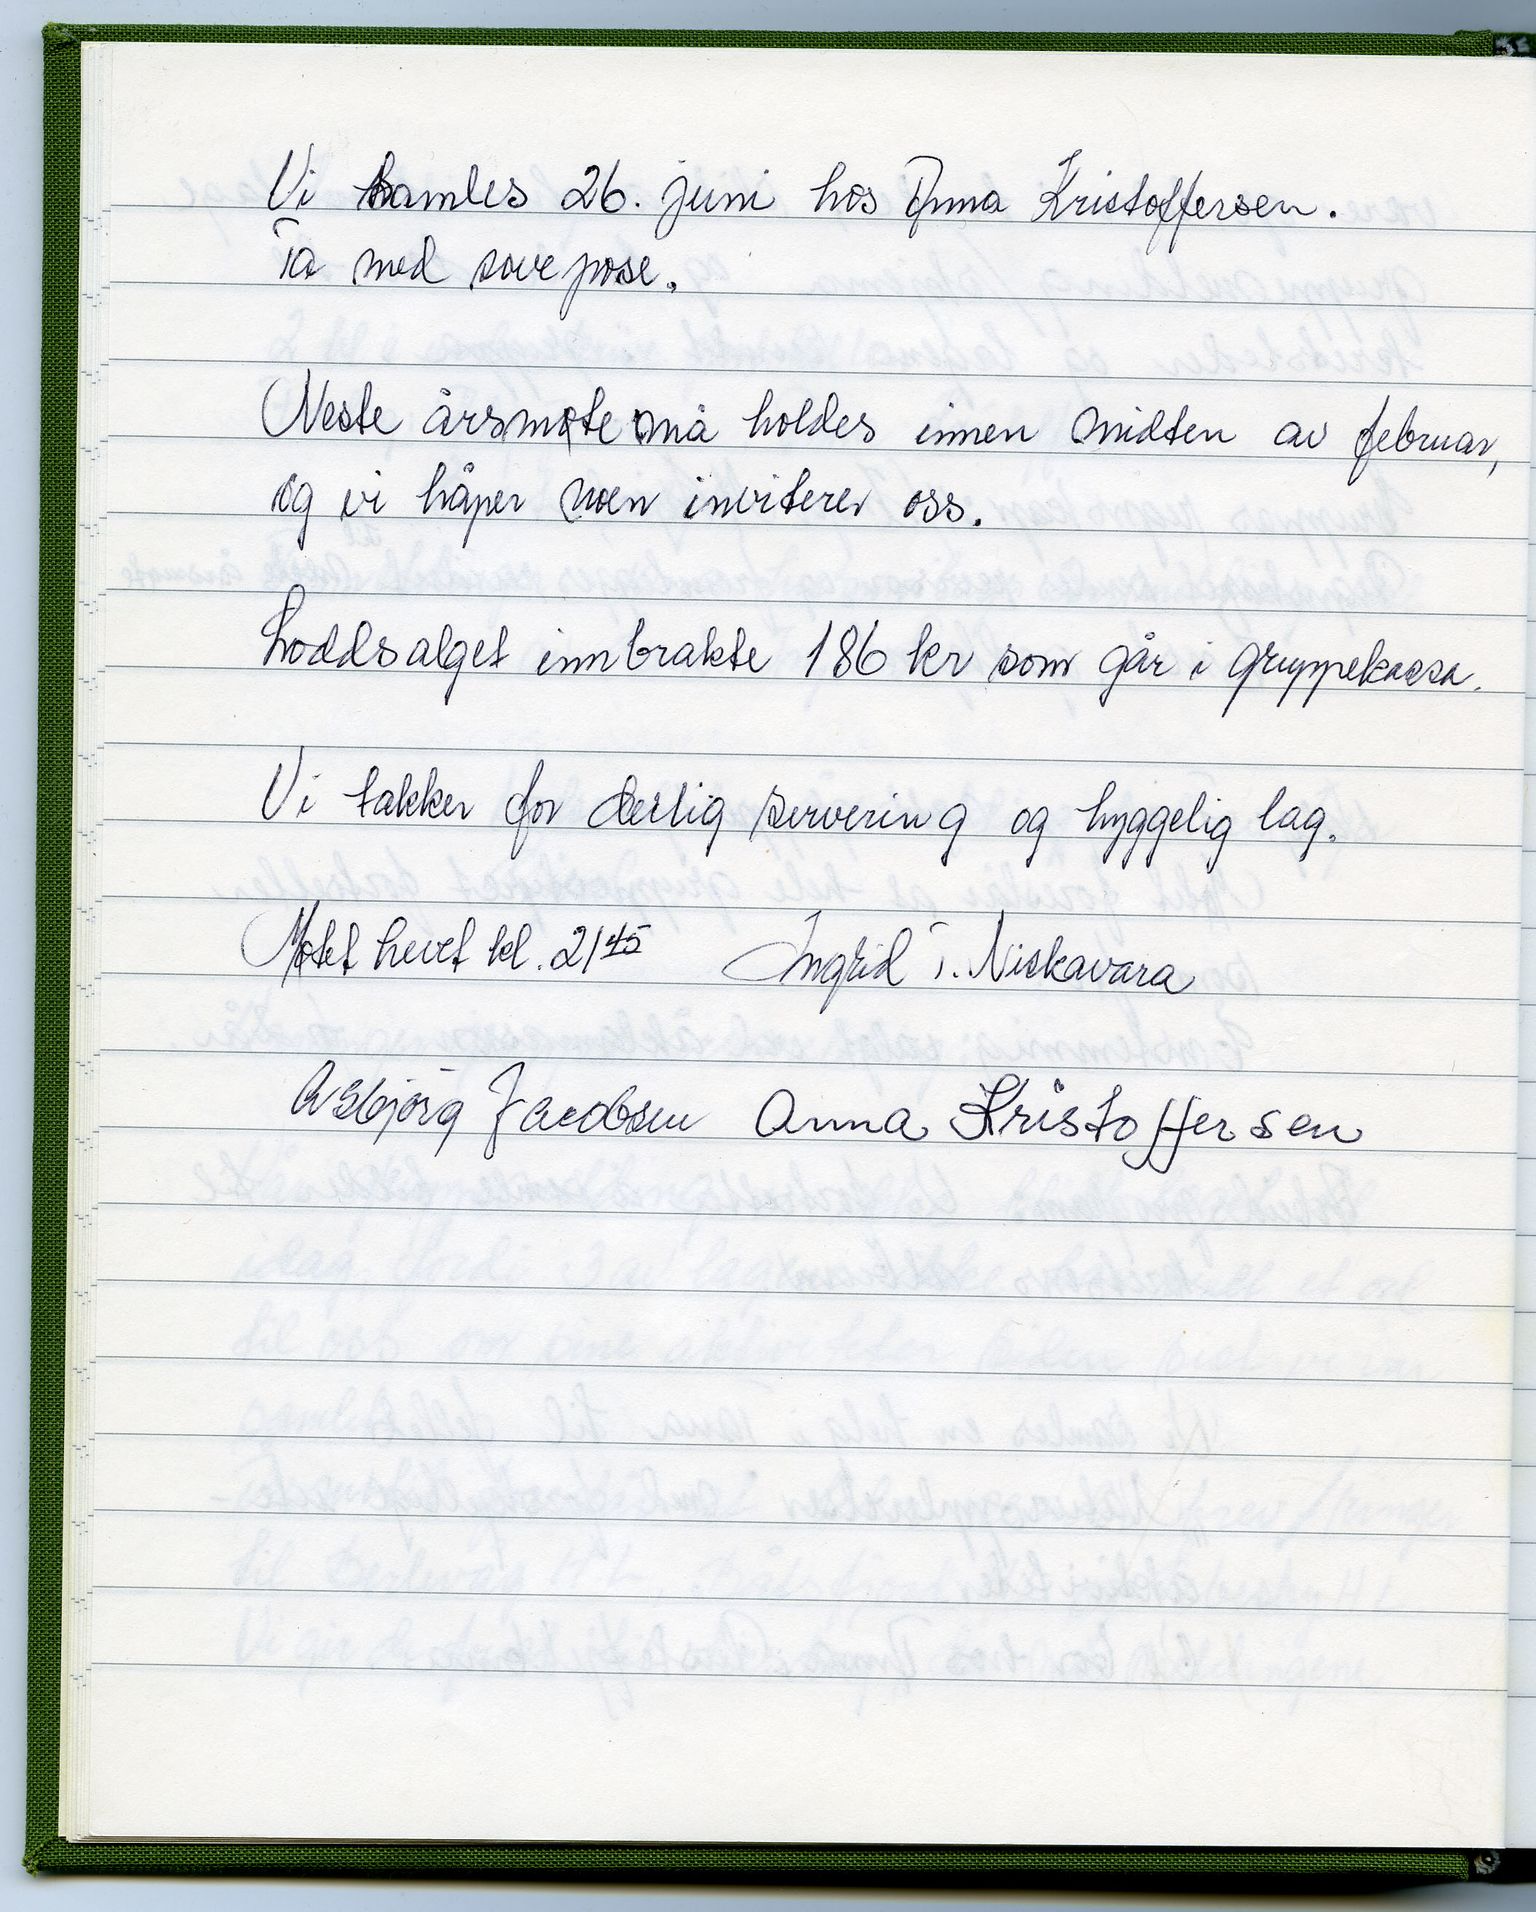 Vi samles 26. juni hos Anna Kristoffersen.
Ta med sovepose.
Neste årsmøte må holdes innen midten av februar,
og vi håper noen inviterer oss.
Loddsalget innbrakte 186 kr som går i gruppekassa.
Vi takker for deilig servering og hyggelig lag.
Møtet hevet kl. 21⁴⁵ Ingrid T. Niskavara
Asbjørg Jacobsen Anna Kristoffersen